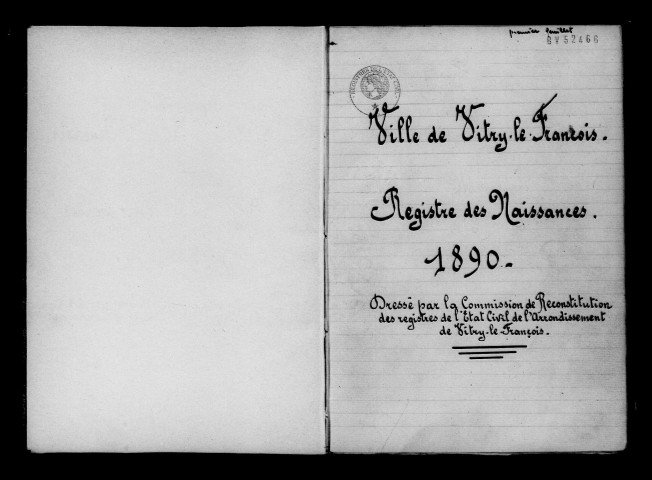 premier feuillet
6Y52466
Ville de Vitry-le-François.
Registre des Naissances.
1890.
Dressé par la Commission de Reconstitution
des registres de l'Etat Civil de l'Arrondissement
de Vitry-le-François.